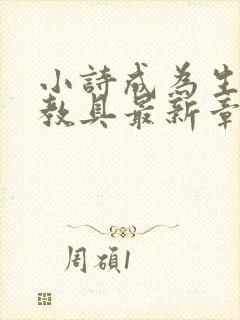 小詩成為生
教具最新章
周碩1